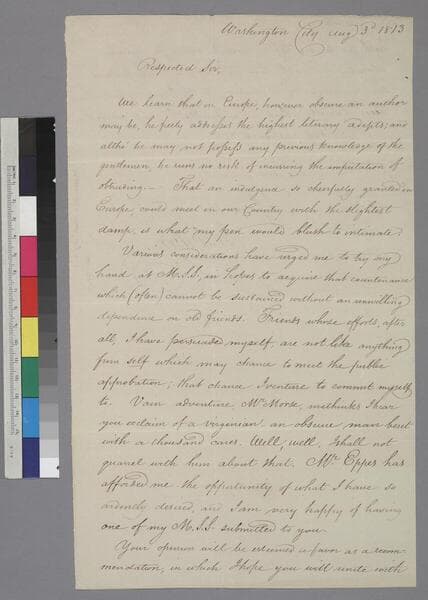 Washington City Aug 3d 1813
Respected Sir,
We learn that in Europe, however obscure an author
may be, he freely addresses the highest literary adepts; and
altho' he may not possess any previous knowledge of the
gentlemen, he runs no risk of incurring the imputation of
obtruding.— That an indulgence so cheerfully granted in
Europe, could meet in our Country with the slightest
damp, is what my pen would blush to intimate.
Various considerations have urged me to try my
hand at M.S.S. in hopes to acquire that countenance
which (often) cannot be sustained without an unwilling
dependence on old friends. Friends whose efforts, after
all, I have persuaded myself are not like anything
from self which may chance to meet the public
approbation; that chance I venture to commit myself
to. Vain adventure Mr. Morse, methinks I hear
you exclaim of a virginian an obscure man beset
with a thousand cares. Well, well, I shall not
quarrel with him about that. Mr. Eppes has
afforded me the opportunity of what I have so
ardently desired, and I am very happy of having
one of my M.S.S. submitted to you.
Your opinion will be esteemed a favor as a recom-
mendation, in which I hope you will unite with